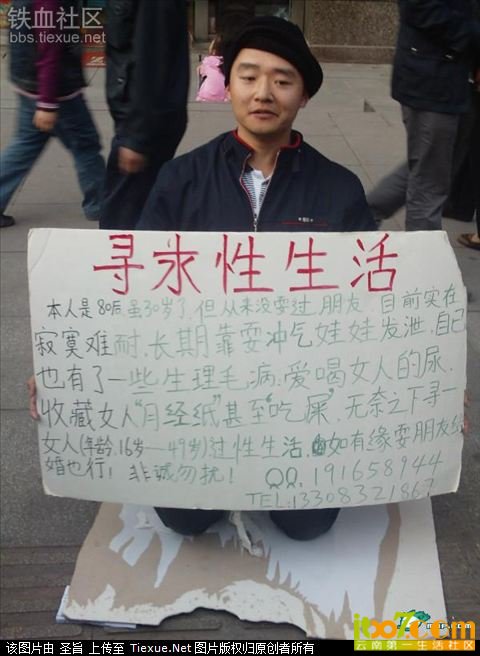 铁血社区
bbs.tiexue.net
寻求性生活
本人是80后虽30岁了,但从来没耍过,朋友 目前实在
寂寞难耐,长期靠耍冲气娃娃发泄,自己
也有了一些生理毛,病:爱喝女人的尿,
收藏女人"月经纸"甚至"吃屎",无奈之下寻一
女人(年龄,16岁—49岁)过性生活,如有缘耍朋友结
婚也行! 非诚勿扰! QQ,191658944
TEL:13308321867
云南第一生活社区
该图片由 圣旨 上传至 Tiexue.Net 图片版权归原创者所有